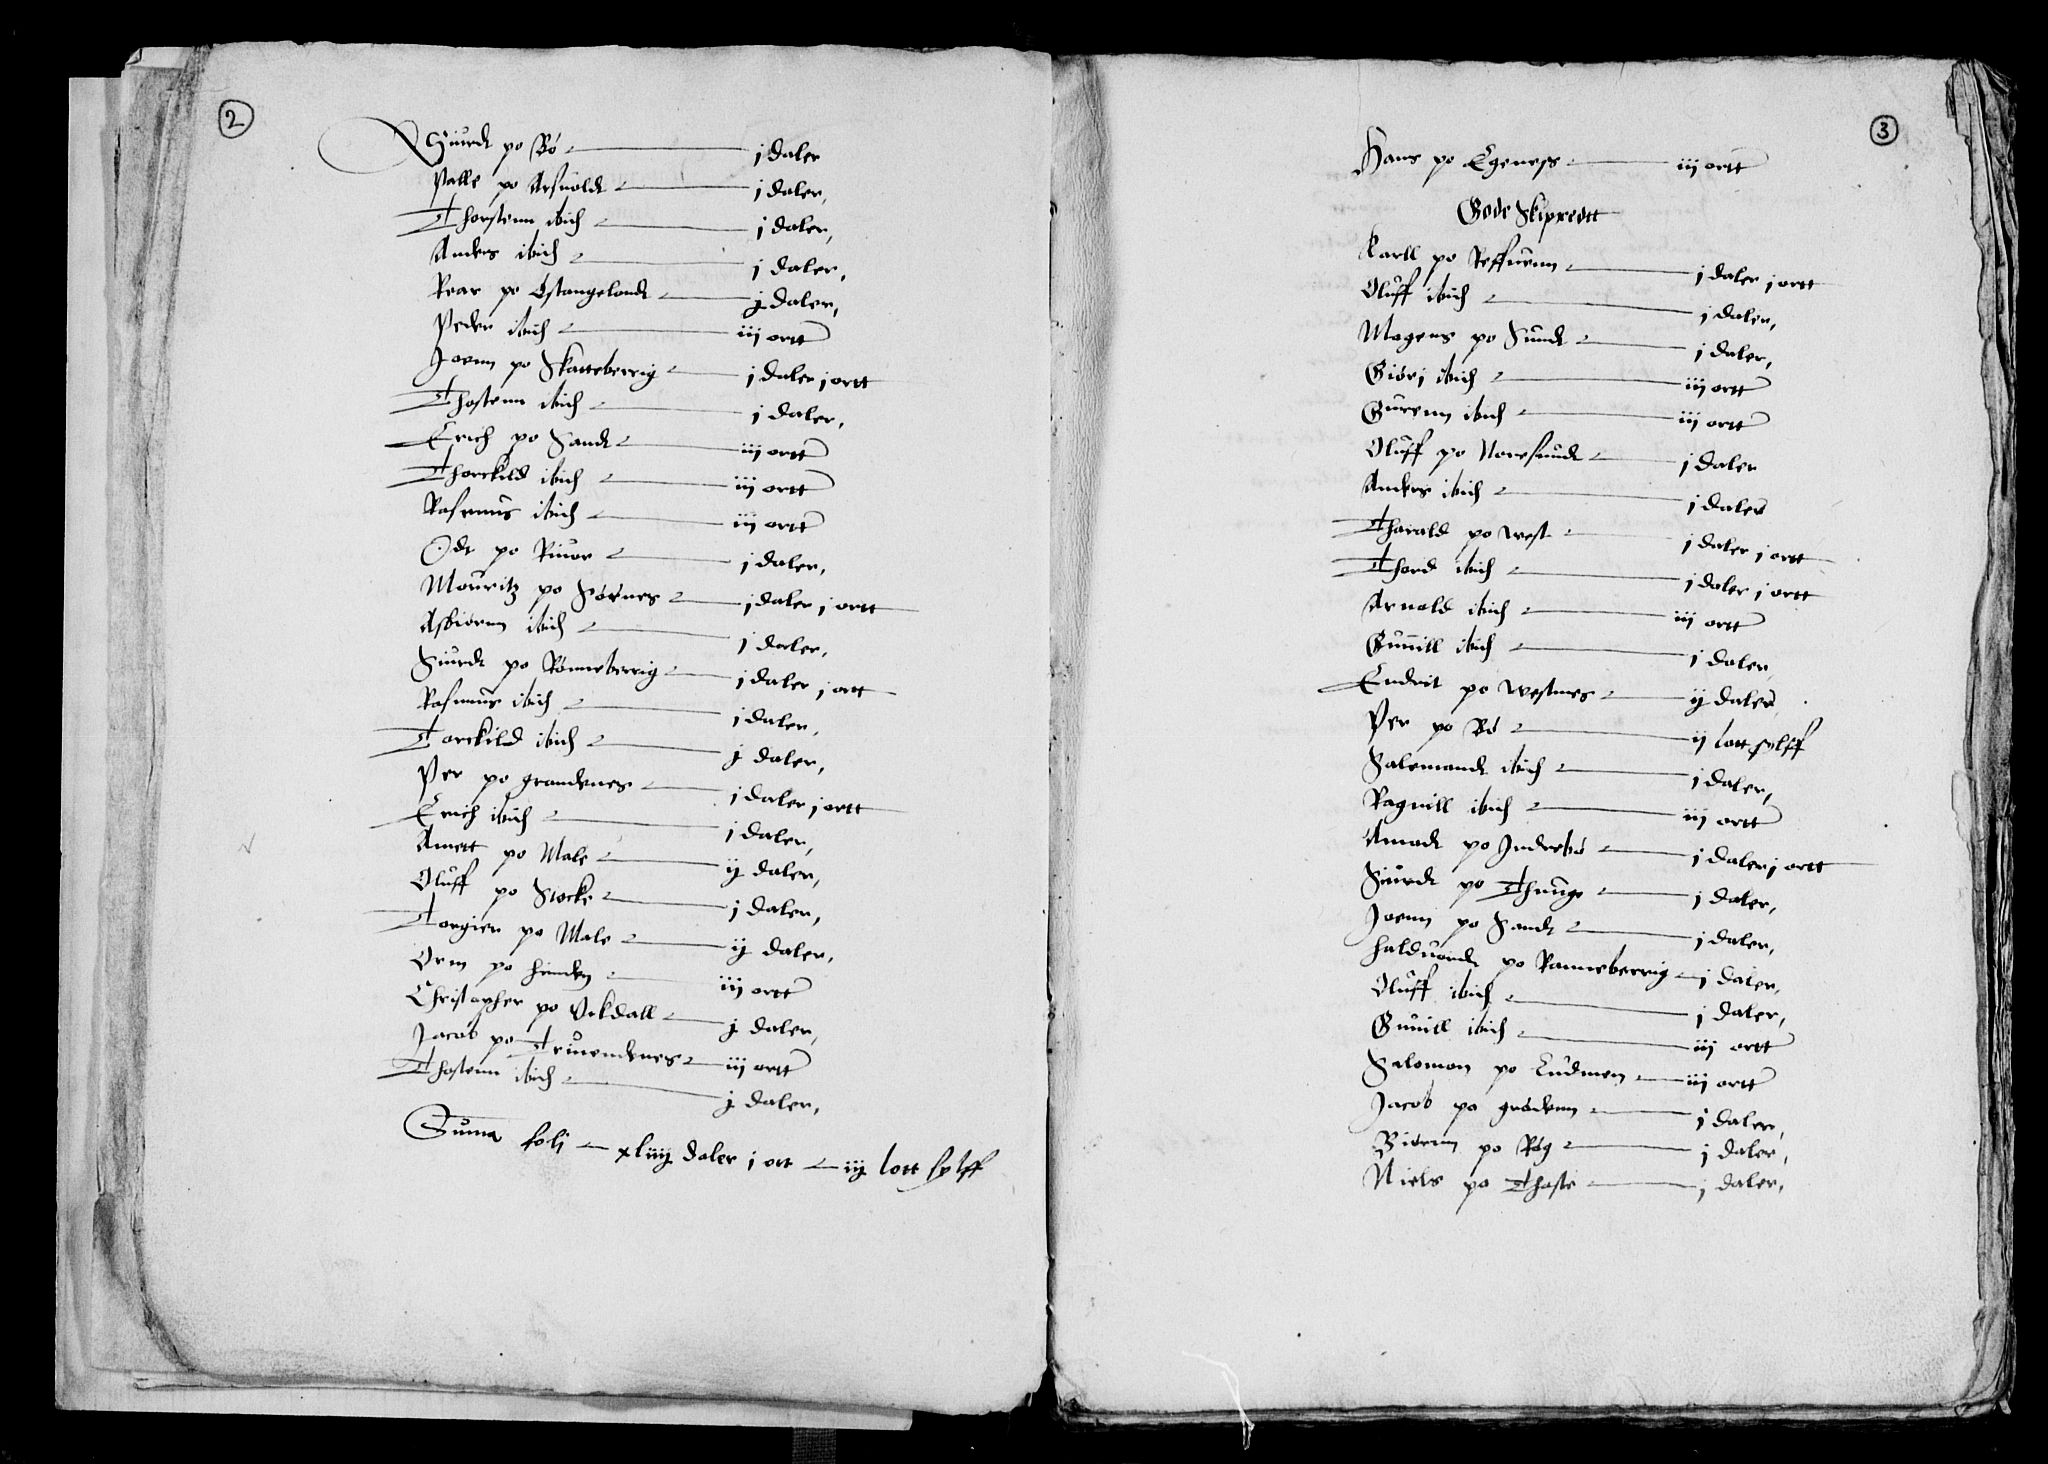 2
Siurdt po Bø j daler
Palle po Arsuoldt j daler,
Thorstenn ibich j daler,
Anders ibich j daler,
Roar po Østangelandt j daler,
Peder ibich iij ortt
Joenn po Skatteberrig j daler j ortt
Thostenn ibich j daler,
Erich po Sandt iij ortt
Thorckild ibich iij ortt
Rasmus ibich iij ortt
Odt po Riuor j daler,
Mouritz po Sørnes j daler j ortt
Asbiornn ibich j daler,
Siurdt po Rønneberrig j daler j ortt
Rasmus ibich j daler,
Torckild ibich j daler,
Per po grandenes j daler j ortt
Erich ibich j daler,
Amett po Male ij daler,
Oluff po Stocke j daler,
Torgier po Male ij daler,
Orm po hinden iij ortt
Christopher po Opdall j daler,
Jacob po iij ortt
Thostenn ibich j daler,
Suma folj xliiij daler j ort iij lott sølff
3
Hans po Egeness iij ortt
Gode Skipredtt
Karll po Reffuenn j daler j ortt
Oluff ibich j daler,
Mogens po Sundt j daler,
Giørj ibich iij ortt
Gurenn ibich iij ortt
Oluff po Noresundt j daler
Anders ibich j daler
Tharald po west j daler j ortt
Thord ibich j daler j ortt
Arnold ibich iij ortt
Gunnill ibich j daler,
Endrit po westnes ij daler
Per po Bø ij lott sølff
Salemandt ibich j daler,
Ragnill ibich iij ortt
Amodt po Indrebø j daler j ortt
Siurdt po Thunge j daler,
Joenn po Sandt j daler,
halduordt po Ranneberrig j daler,
Oluff ibich j daler,
Gunill ibich iij ortt
Salomon po Ludmen iij ortt
Jacob po grødenn j daler,
Biørnn po Røg j daler,
Niels po Thaste j daler,